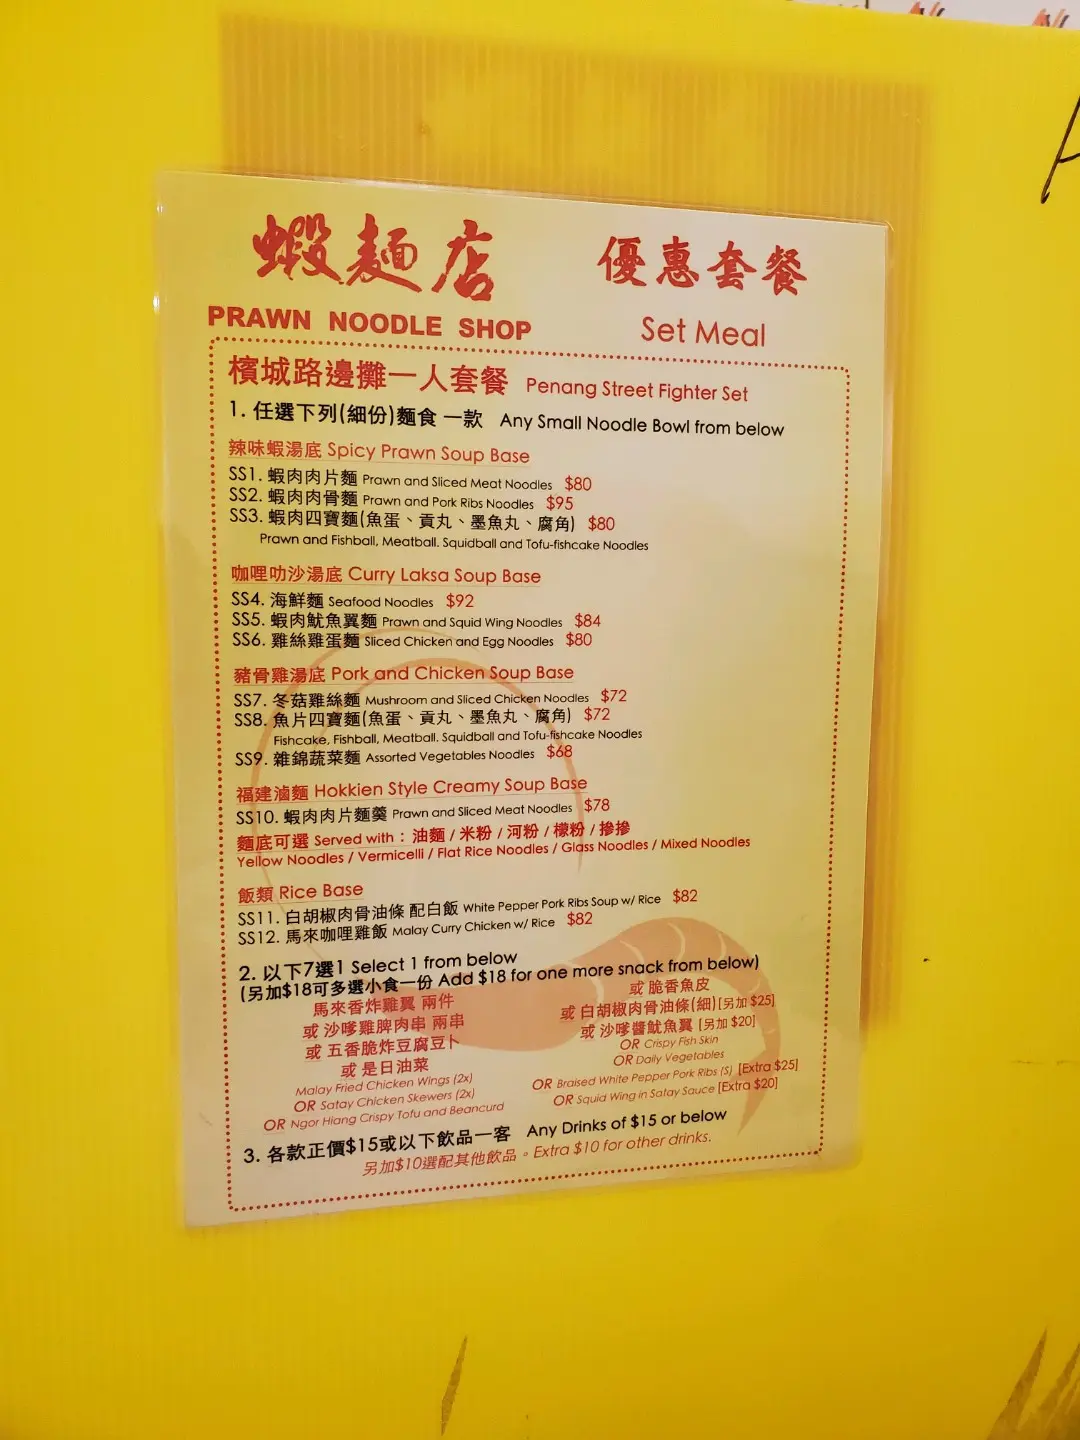 蝦麵店 優惠套餐
PRAWN NOODLE SHOP Set Meal
檳城路邊攤一人套餐 Penang Street Fighter Set
1. 任選下列(細份)麵食 一款 Any Small Noodle Bowl from below
辣味蝦湯底 Spicy Prawn Soup Base
SS1. 蝦肉肉片麵 Prawn and Sliced Meat Noodles $80
SS2. 蝦肉肉骨麵 Prawn and Pork Ribs Noodles $95
SS3. 蝦肉四寶麵(魚蛋、貢丸、墨魚丸、腐角) $80
Prawn and Fishball, Meatball. Squidball and Tofu-fishcake Noodles
咖哩叻沙湯底 Curry Laksa Soup Base
SS4. 海鮮麵 Seafood Noodles $92
SS5. 蝦肉魷魚翼麵 Prawn and Squid Wing Noodles $84
SS6. 雞絲雞蛋麵 Sliced Chicken and Egg Noodles $80
豬骨雞湯底 Pork and Chicken Soup Base
SS7. 冬菇雞絲麵 Mushroom and Sliced Chicken Noodles $72
SS8. 魚片四寶麵(魚蛋、貢丸、墨魚丸、腐角) $72
Fishcake, Fishball, Meatball. Squidball and Tofu-fishcake Noodles
SS9. 雜錦蔬菜麵 Assorted Vegetables Noodles $68
福建滷麵 Hokkien Style Creamy Soup Base
SS10. 蝦肉肉片麵羹 Prawn and Sliced Meat Noodles $78
麵底可選 Served with : 油麵 / 米粉 / 河粉 / 檬粉 / 摻摻
Yellow Noodles / Vermicelli / Flat Rice Noodles / Glass Noodles / Mixed Noodles
飯類 Rice Base
SS11. 白胡椒肉骨油條 配白飯 White Pepper Pork Ribs Soup w/ Rice $82
SS12. 馬來咖哩雞飯 Malay Curry Chicken w/ Rice $82
2. 以下7選1 Select 1 from below
(另加$18可多選小食一份 Add $18 for one more snack from below)
馬來香炸雞翼 兩件
或 沙嗲雞脾肉串 兩串
或 五香脆炸豆腐豆卜
或 是日油菜
Malay Fried Chicken Wings (2x)
OR Satay Chicken Skewers (2x)
OR Ngor Hiang Crispy Tofu and Beancurd
或 脆香魚皮
或 白胡椒肉骨油條(細)[另加 $25]
或 沙嗲醬魷魚翼 [另加 $20]
OR Crispy Fish Skin
OR Daily Vegetables
OR Braised White Pepper Pork Ribs (S) [Extra $25]
OR Squid Wing in Satay Sauce [Extra $20]
3. 各款正價$15或以下飲品一客 Any Drinks of $15 or below
另加$10選配其他飲品。Extra $10 for other drinks.